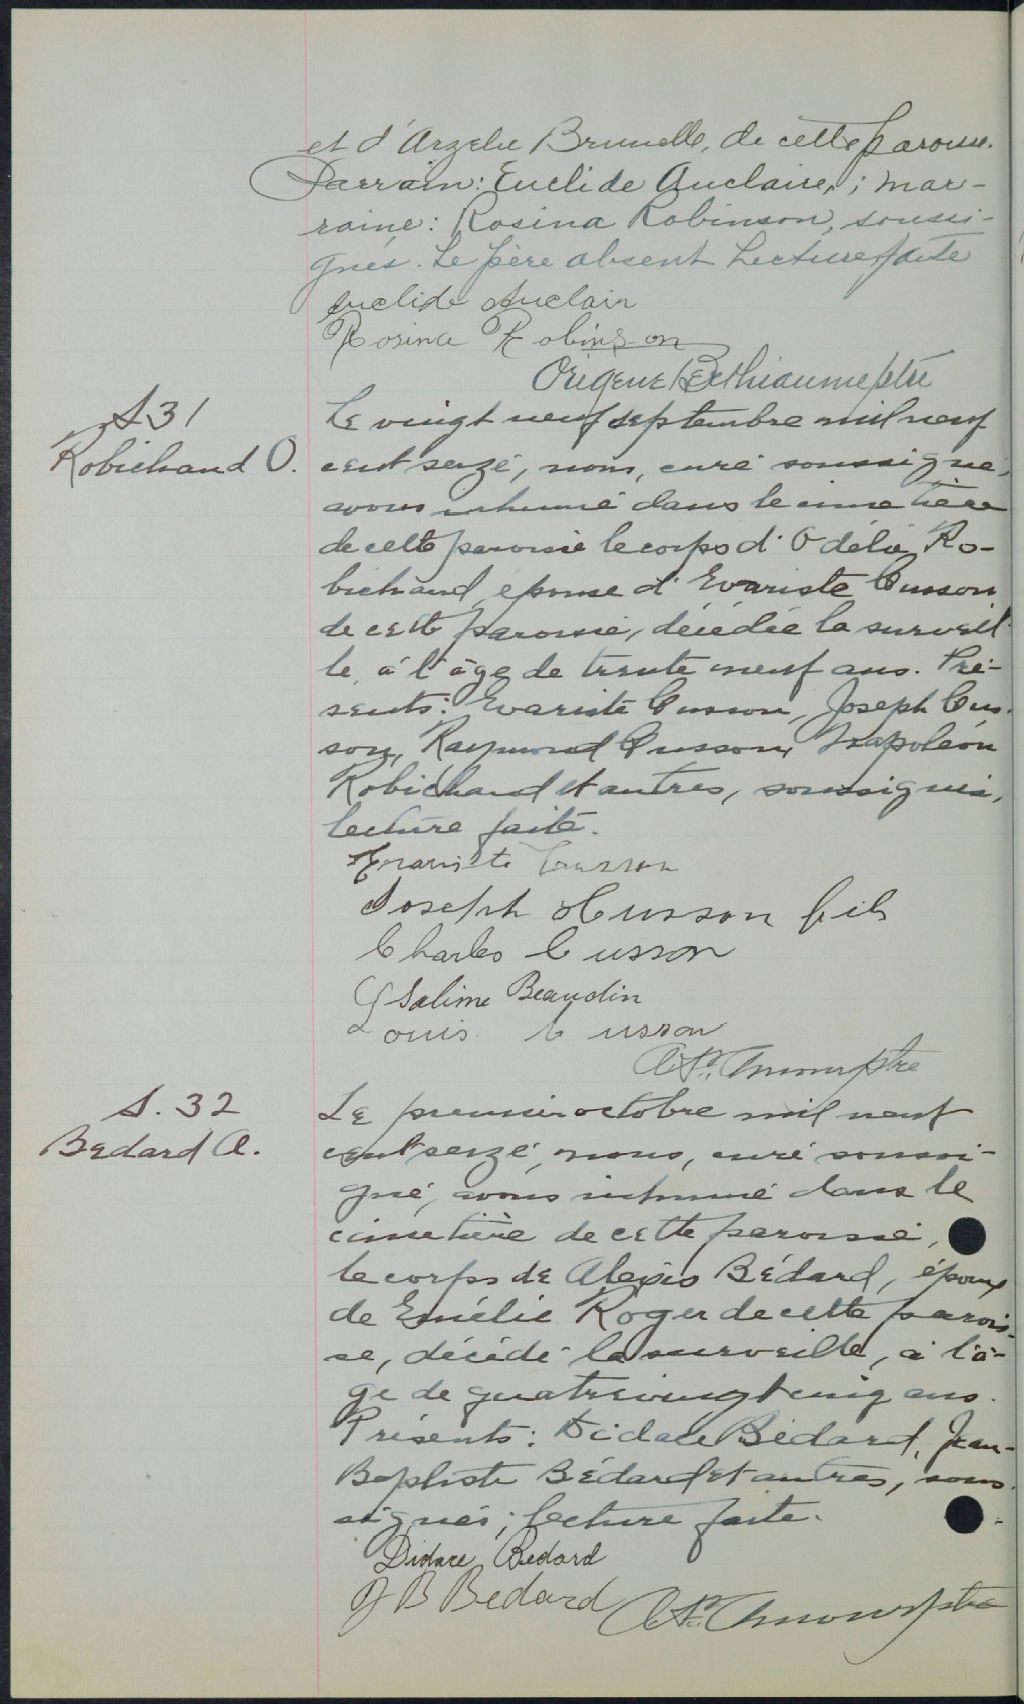 et d'Arzelie Brunelle, de cette paroisse.
Parrain: Euclide Auclaire, ; mar-
raine: Rosina Robinson, soussi-
gnés. Le père absent Lecture faite
Euclide Auclair
Rosina Robinson
Origene Berthiaume ptre
S 31
Robichaud O.
Le vingt neuf septembre mil neuf
cent seize, nous, curé soussigné,
avons inhumé dans le cimetière
de cette paroisse le corps d'Odélie Ro-
bichaud, épouse d'Evariste Cusson
de cette paroisse, décédée la surveil-
le, à l'âge de trente neuf ans. Pré-
sents: Evariste Cusson, Joseph Cus-
son, Raymond Cusson, Napoléon
Robichaud et autres, soussignés,
lecture faite.
Evariste Cusson
Joseph Cusson fils
Charles Cusson
Salime Beaudin
Louis Cusson
ptre
S. 32
Bedard A.
Le premier octobre mil neuf
cent seize, nous, curé soussi-
gné, avons inhumé dans le
cimetière de cette paroisse,
le corps de Alexis Bédard, époux
de Emélie Roger de cette parois-
se, décédé la surveille, à l'â-
ge de quatrevingt cinq ans.
Présents: Didace Bédard, Jean-
Baptiste Bédard et autres, sous-
signés; lecture faite.
Didace Bedard
J B Bedard
ptre